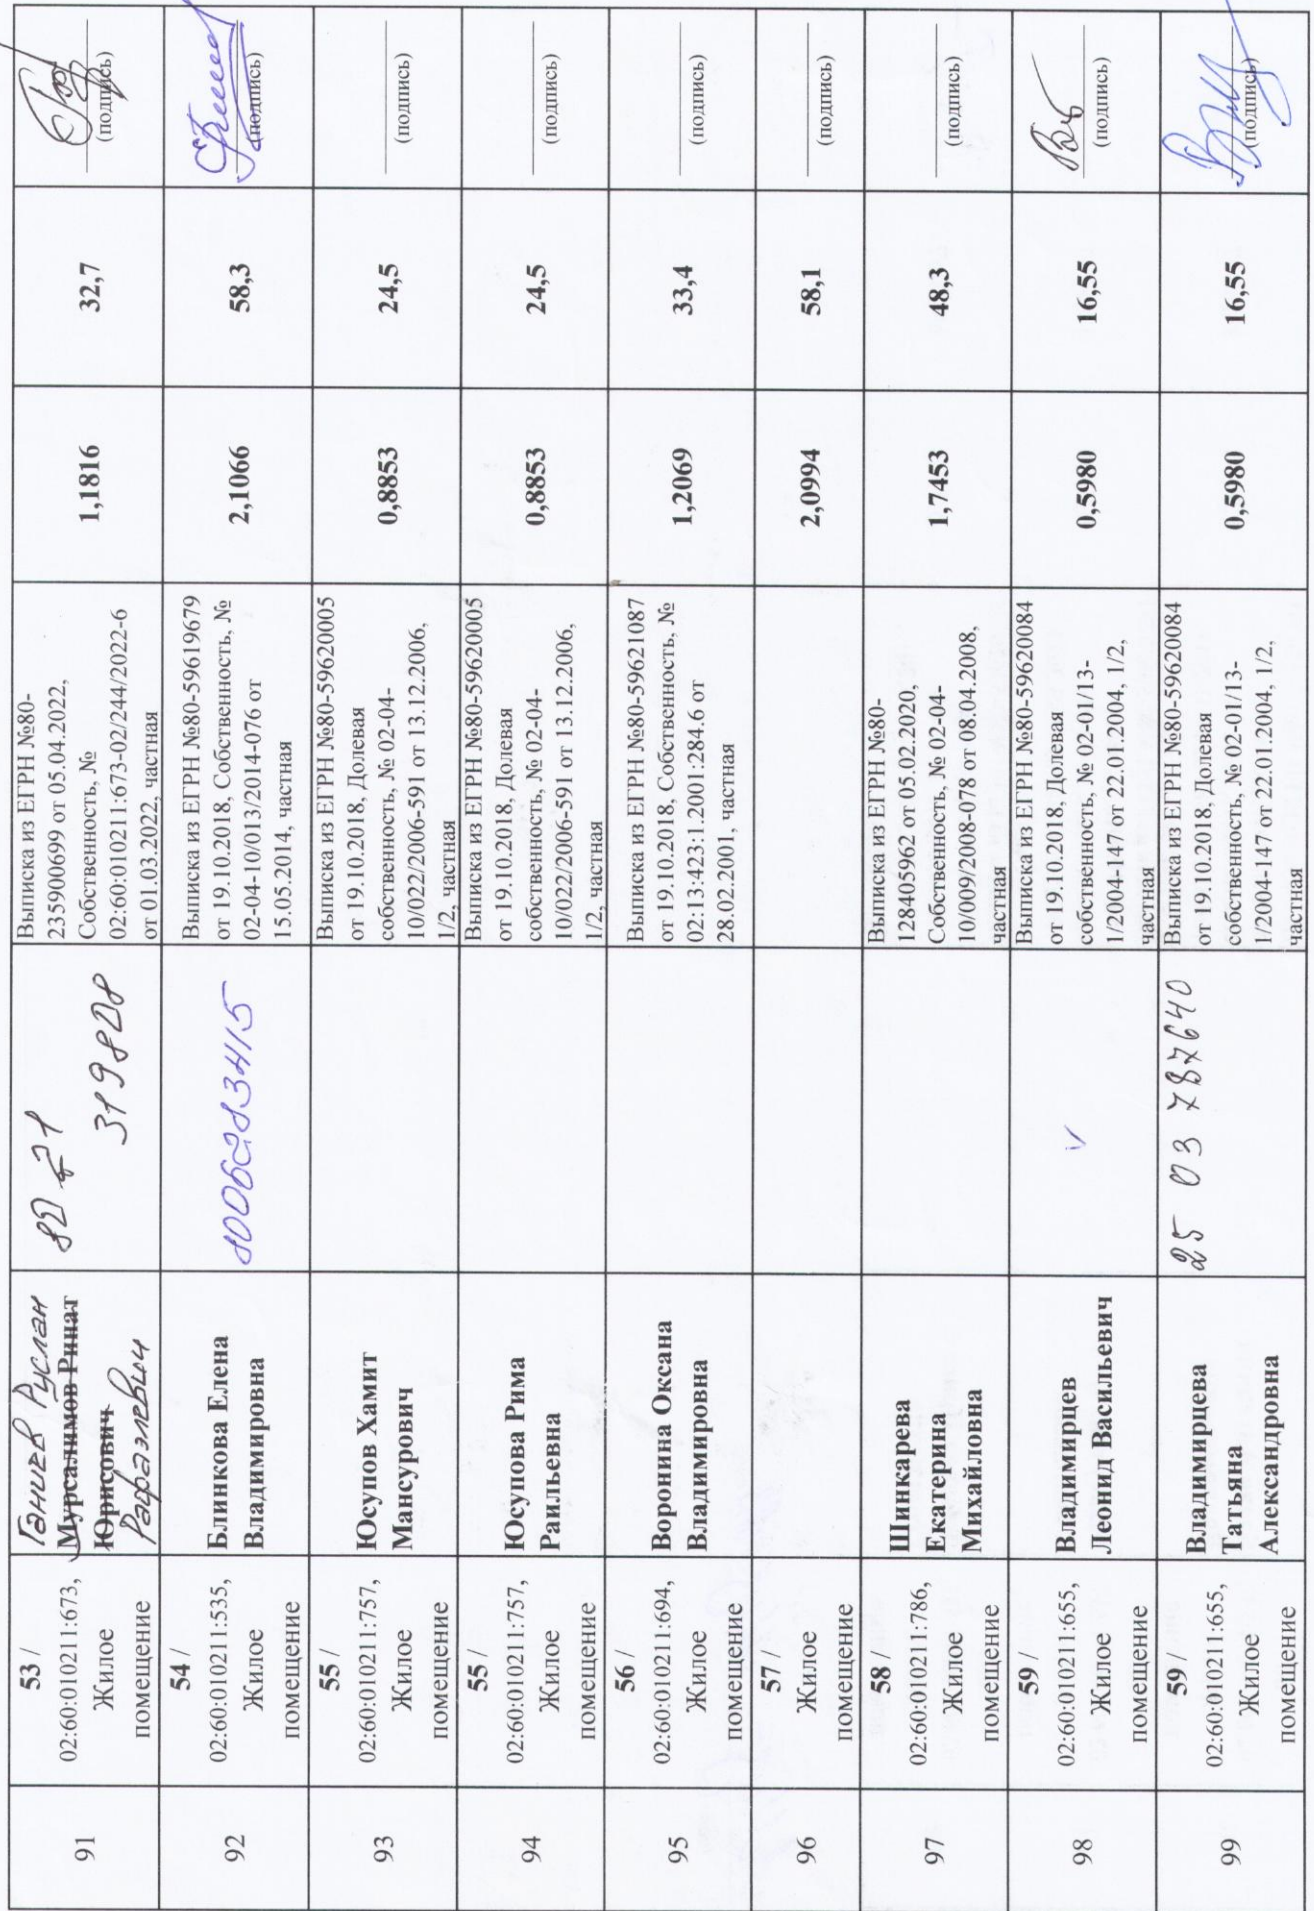 91
53 /
02:60:010211:673,
Жилое
помещение
Ганиев Руслан
Мурсалимов Ринат
Юрисович
Рафаэлевич
80 21
319808
Выписка из ЕГРН №80-
235900699 от 05.04.2022,
Собственность, №
02:60:010211:673-02/244/2022-6
от 01.03.2022, частная
1,1816
32,7
(подпись)
92
54 /
02:60:010211:535,
Жилое
помещение
Блинкова Елена
Владимировна
Выписка из ЕГРН №80-59619679
от 19.10.2018, Собственность, №
02-04-10/013/2014-076 от
15.05.2014, частная
2,1066
58,3
(подпись)
93
55 /
02:60:010211:757,
Жилое
помещение
Юсупов Хамит
Мансурович
Выписка из ЕГРН №80-59620005
от 19.10.2018, Долевая
собственность, № 02-04-
10/022/2006-591 от 13.12.2006,
1/2, частная
0,8853
24,5
(подпись)
94
55 /
02:60:010211:757,
Жилое
помещение
Юсупова Рима
Раильевна
Выписка из ЕГРН №80-59620005
от 19.10.2018, Долевая
собственность, № 02-04-
10/022/2006-591 от 13.12.2006,
1/2, частная
0,8853
24,5
(подпись)
95
56 /
02:60:010211:694,
Жилое
помещение
Воронина Оксана
Владимировна
Выписка из ЕГРН №80-59621087
от 19.10.2018, Собственность, №
02:13:423:1.2001:284.6 от
28.02.2001, частная
1,2069
33,4
(подпись)
96
57 /
Жилое
помещение
2,0994
58,1
(подпись)
97
58 /
02:60:010211:786,
Жилое
помещение
Шинкарева
Екатерина
Михайловна
Выписка из ЕГРН №80-
128405962 от 05.02.2020,
Собственность, № 02-04-
10/009/2008-078 от 08.04.2008,
частная
1,7453
48,3
(подпись)
98
59 /
02:60:010211:655,
Жилое
помещение
Владимирцев
Леонид Васильевич
Выписка из ЕГРН №80-59620084
от 19.10.2018, Долевая
собственность, № 02-01/13-
1/2004-147 от 22.01.2004, 1/2,
частная
0,5980
16,55
(подпись)
99
59 /
02:60:010211:655,
Жилое
помещение
Владимирцева
Татьяна
Александровна
25 03 787640
Выписка из ЕГРН №80-59620084
от 19.10.2018, Долевая
собственность, № 02-01/13-
1/2004-147 от 22.01.2004, 1/2,
частная
0,5980
16,55
(подпись)